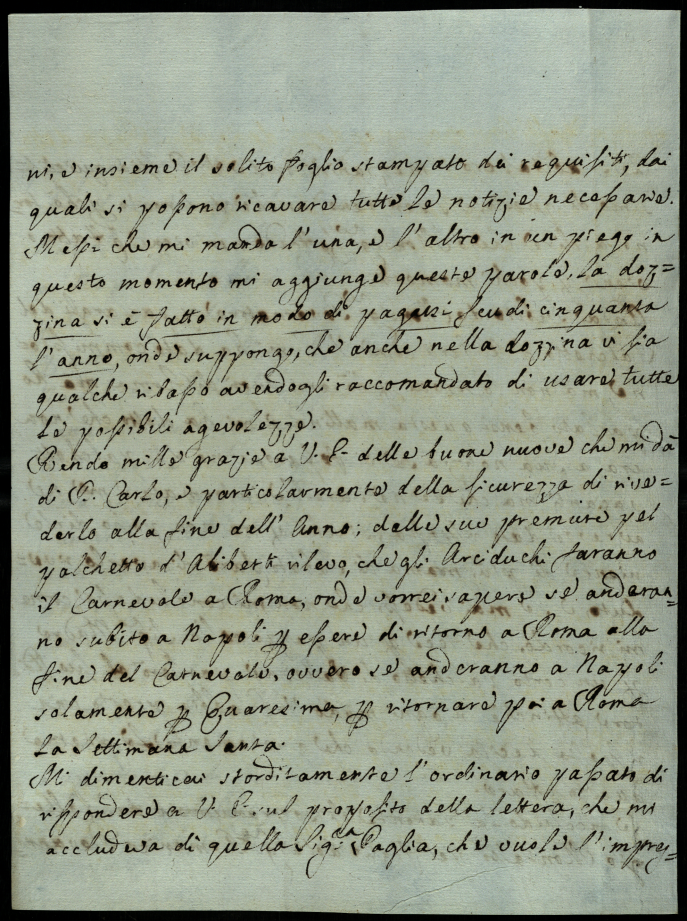 ni, e insieme il solito foglio stampato dei requisiti, dai
quali si possono ricavare tutte le notizie necessarie.
Messi che mi manda l'una, e l'altro in un piego in
questo momento mi aggiunge queste parole, la doz=
zina si è fatto in modo di pagarsi scudi cinquanta
l'anno, onde suppongo, che anche nella dozzina vi sia
qualche ribasso avendogli raccomandato di usare tutte
le possibili agevolezze.
Rendo mille grazie a V. E. delle buone nuove che mi dà
di D. Carlo, e particolarmente della sicurezza di rive=
derlo alla fine dell'Anno; dalle sue premure pel
palchetto d'Aliberti rilevo, che gli Arciduchi faranno
il Carnevale a Roma, onde vorrei sapere se anderan=
no subito a Napoli p essere di ritorno a Roma alla
fine del Carnevale, ovvero se anderanno a Napoli
solamente p Quaresima, p ritornare poi a Roma
la Settimana Santa.
Mi dimenticai storditamente l'ordinario passato di
rispondere a V. E. sul proposito della lettera, che mi
accludeva di quella Sig.ra Paglia, che vuole l'impres=